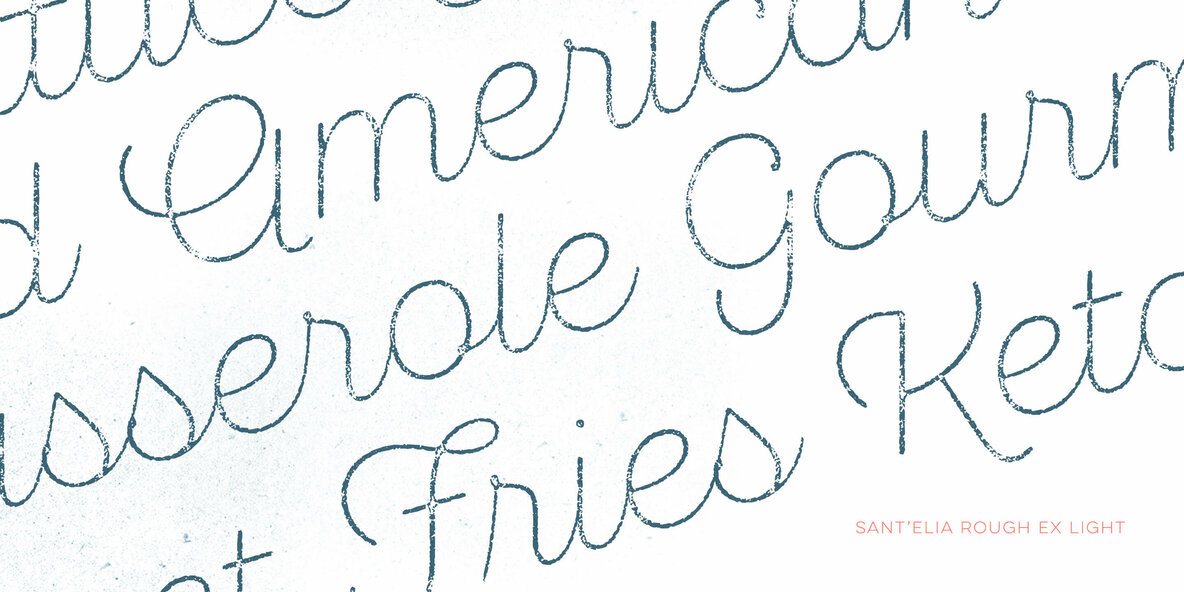 American
Casserole Gourm
Fries Keto
SANT'ELIA ROUGH EX LIGHT